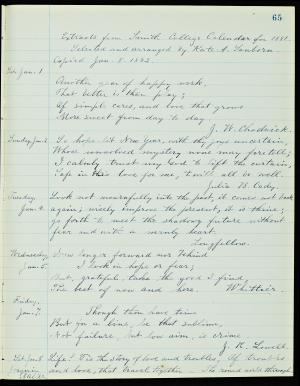 65
Extracts from Smith College Calendar for 1881.
Selected and arranged by Kate A. Sanborn
Copied Jan. 8. 1882.
Sat. Jan. 1.
Another year of happy work,
That better is than play;
Of simple cares, and love that grows
More sweet from day to day.
J. W. Chadwick.
Sunday, Jan. 2.
So hope. lit New year, with thy joys uncertain,
Whose unsolved mystery none may foretell;
I calmly trust my God to lift the curtain,
Safe in His love for me, t'will all be well.
Julia H. Cady.
Tuesday,
Jan. 4.
Look not mournfully into the past, it comes not back
again; wisely improve the present, it is thine;
go forth to meet the shadowy future without
fear and with a manly heart.
Longfellow.
Wednesday
Jan. 5.
No longer forward nor behind
I look in hope or fear;
But, grateful, take the good I find,
The best of now and here.
Whittier.
Friday,
Jan. 7.
Though thou have time
But for a line, be that sublime,
Not failure, but low aim, is crime
J. R. Lowell.
Sat. Jan. 8
Life! 'Tis the story of love and troubles, Of troubles
and love, that travel together The round world through